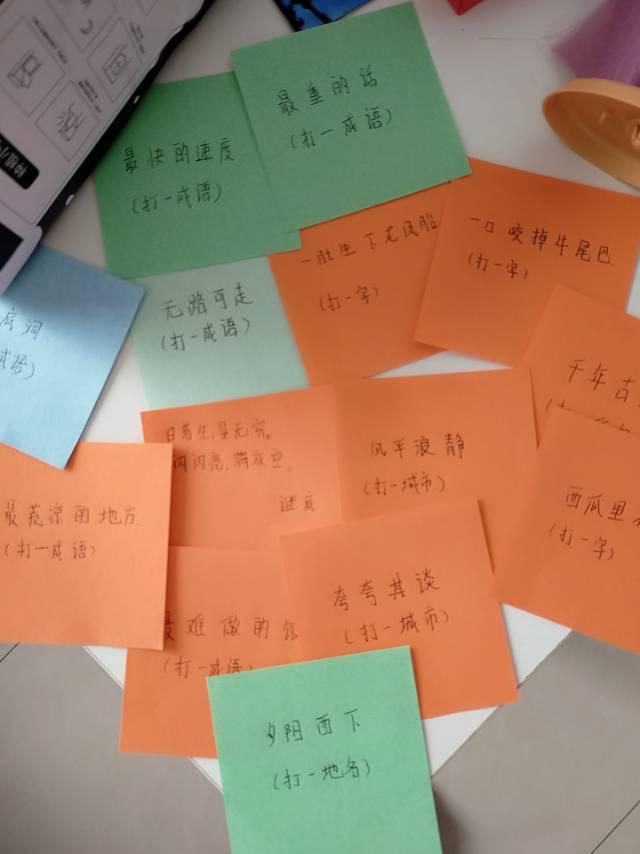 最重的话
(打一成语)
最快的速度
(打一成语)
一口咬掉牛尾巴
(打一字)
一胜生下龙凤胎
(打一字)
无路可走
(打一成语)
底洞
成语)
千年古
日落生,最无穷。
闪闪亮,满夜空。
谜底
风平浪静
(打一城市)
西瓜里
(打一字)
最荒凉的地方
(打一成语)
夸夸其谈
(打一城市)
最难做的
(打一成语
夕阳西下
(打一地名)